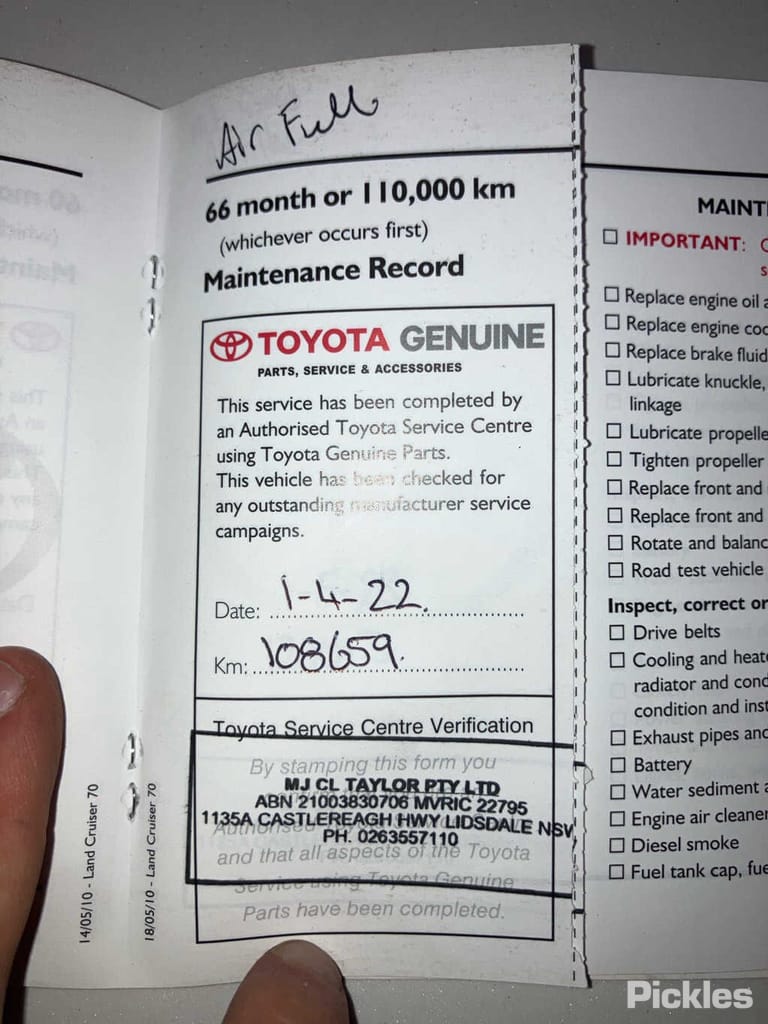 Air Full
66 month or 110,000 km
(whichever occurs first)
Maintenance Record
TOYOTA GENUINE
PARTS, SERVICE & ACCESSORIES
This service has been completed by
an Authorised Toyota Service Centre
using Toyota Genuine Parts.
This vehicle has been checked for
any outstanding manufacturer service
campaigns.
Date: 1-4-22.
Km: 108659.
Toyota Service Centre Verification
By stamping this form you
MJ CL TAYLOR PTY LTD
ABN 21003830706 MVRIC 22795
1135A CASTLEREAGH HWY LIDSDALE NSW
PH. 0263557110
Authorised
and that all aspects of the Toyota
Service using Toyota Genuine
Parts have been completed.
14/05/10 - Land Cruiser 70
18/05/10 - Land Cruiser 70
MAINT
IMPORTANT:
Replace engine oil
Replace engine coo
Replace brake fluid
Lubricate knuckle,
linkage
Lubricate propelle
Tighten propeller
Replace front and
Replace front and
Rotate and balanc
Road test vehicle
Inspect, correct or
Drive belts
Cooling and heate
radiator and cond
condition and inst
Exhaust pipes and
Battery
Water sediment
Engine air cleaner
Diesel smoke
Fuel tank cap, fue
Pickles